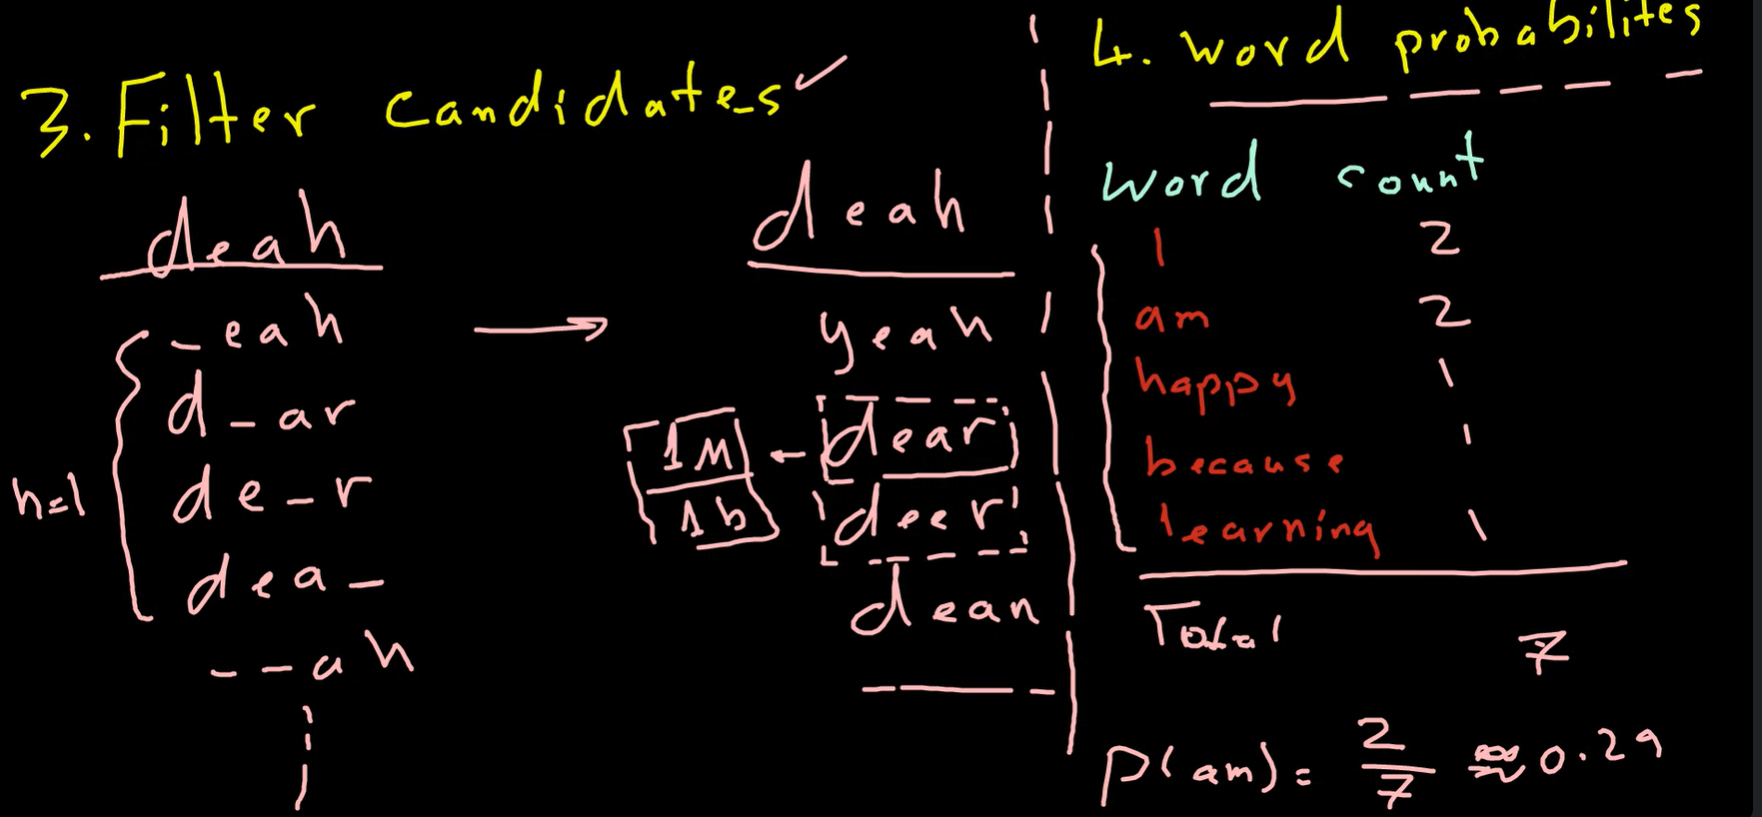 3. Filter candidates ✓
deah
_eah
d_ar
de_r
n=1
dea_
__ah
deah
yeah
dear
1M
1b
deer
dean
4. word probabilites
word count
I 2
am 2
happy 1
because 1
learning 1
Total 7
P(am) = 2/7 ≈ 0.29